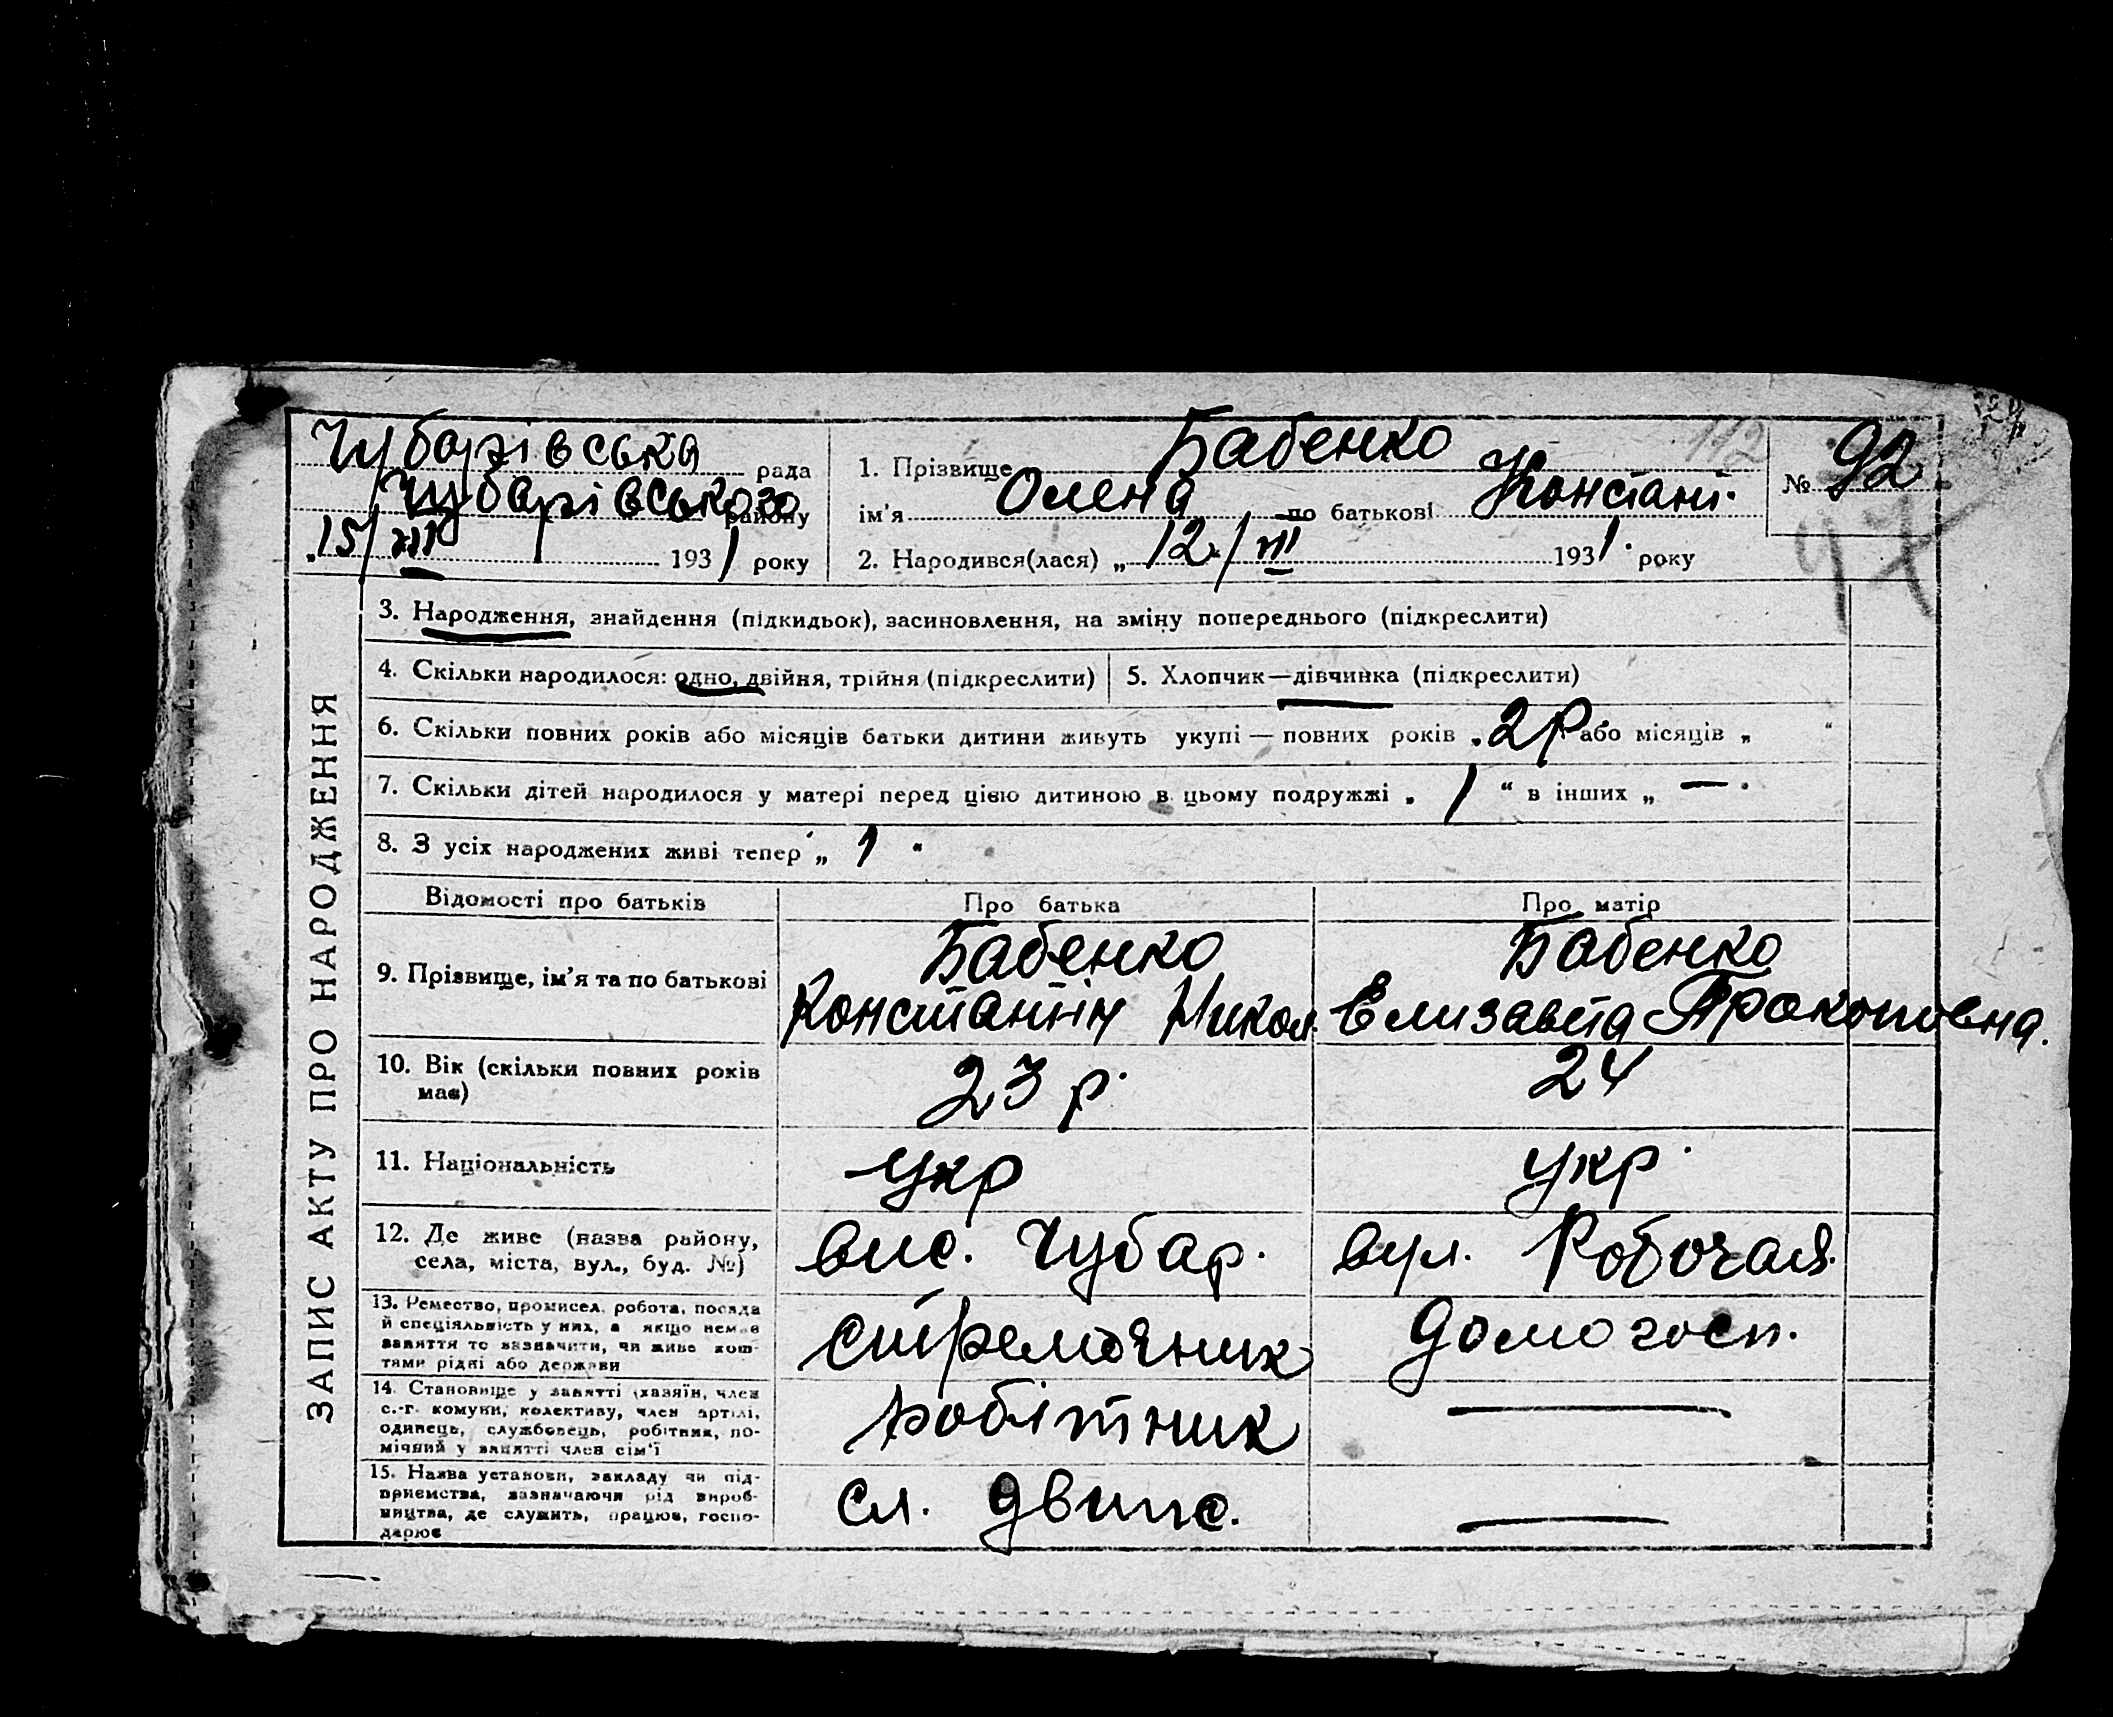 Чубарівська рада
Чубарівського району
15/III 1931 року
1. Прізвище Бабенко 112
№ 92
ім'я Олена по батькові Констант.
2. Народився(лася) „12/III 1931 року
47
ЗАПИС АКТУ ПРО НАРОДЖЕННЯ
3. Народження, знайдення (підкидьок), засиновлення, на зміну попереднього (підкреслити)
4. Скільки народилося: одно, двійня, трійня (підкреслити)
5. Хлопчик—дівчинка (підкреслити)
6. Скільки повних років або місяців батьки дитини живуть укупі — повних років „2 р або місяців „ "
7. Скільки дітей народилося у матері перед цією дитиною в цьому подружжі „ 1 " в інших „ — "
8. З усіх народжених живі тепер „ 1 "
Відомості про батьків Про батька Про матір
9. Прізвище, ім'я та по батькові
Бабенко
Константін Никол.
Бабенко
Елизавета Прокоповна.
10. Вік (скільки повних років
має)
23 р.
24
11. Національність укр укр.
12. Де живе (назва району,
села, міста, вул., буд. №)
вис. Чубар.
вул. Робочая.
13. Ремество, промисел, робота, посада
й спеціяльність у них, а якщо немає
заняття то зазначити, чи живе кош-
тами рідні або держави
стрелочник
домогосп.
14. Становище у занятті (хазяїн, член
с.-г. комуни, колективу, член артілі,
одинець, службовець, робітник, по-
мічний у занятті член сім'ї
робітник
—
15. Назва установи, закладу чи під-
приємства, зазначаючи рід вироб-
ництва, де служить, працює, госпо-
дарює
сл.
—